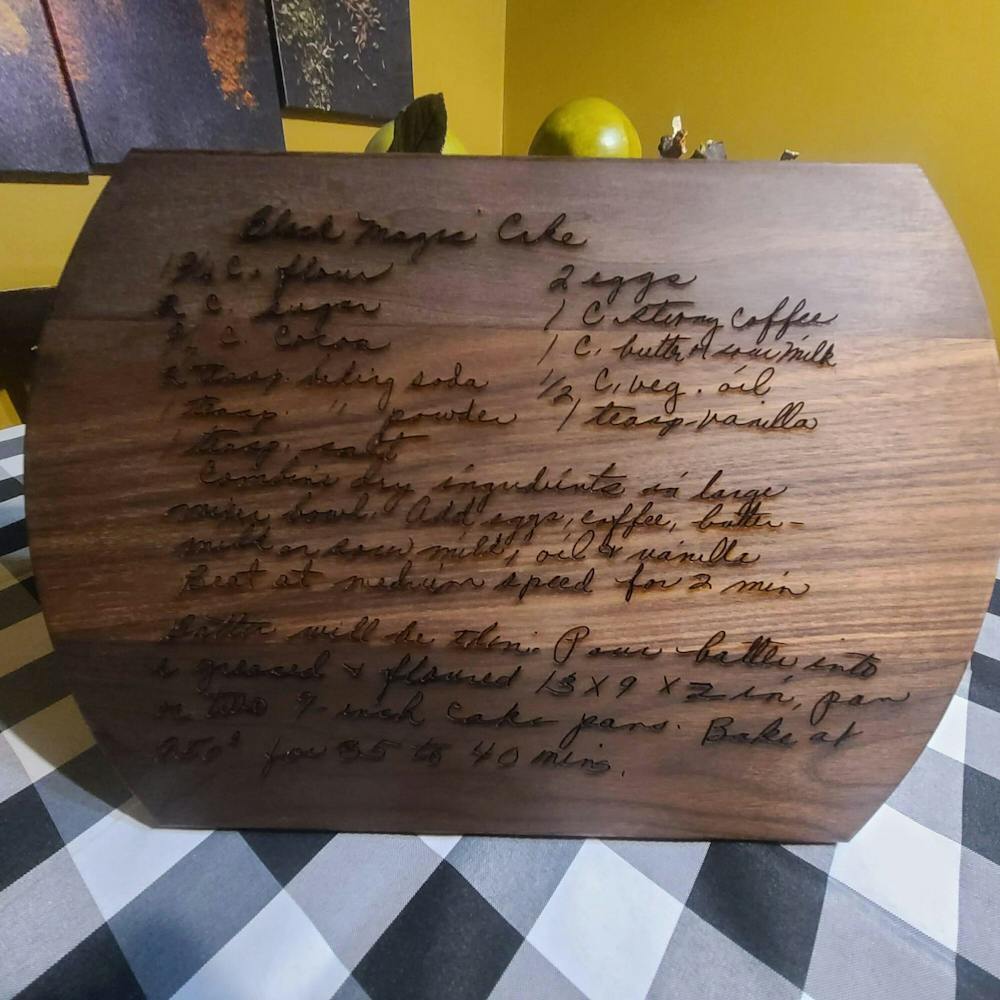 Black Magic Cake
1 3/4 C. flour
2 C. sugar
C. Cocoa
2 teasp. baking soda
1 teasp. " powder
1 teasp. salt
2 eggs
1 C. strong coffee
1 C. butter or sour milk
1/2 C. veg. oil
1 teasp. vanilla
Combine dry ingredients in large
mixer bowl. Add eggs, coffee, butter-
milk or sour milk, oil & vanilla
Beat at medium speed for 2 min
Batter will be thin. Pour batter into
a greased & floured 13 x 9 x 2 in, pan
or two 9-inch cake pans. Bake at
350° for 35 to 40 mins.